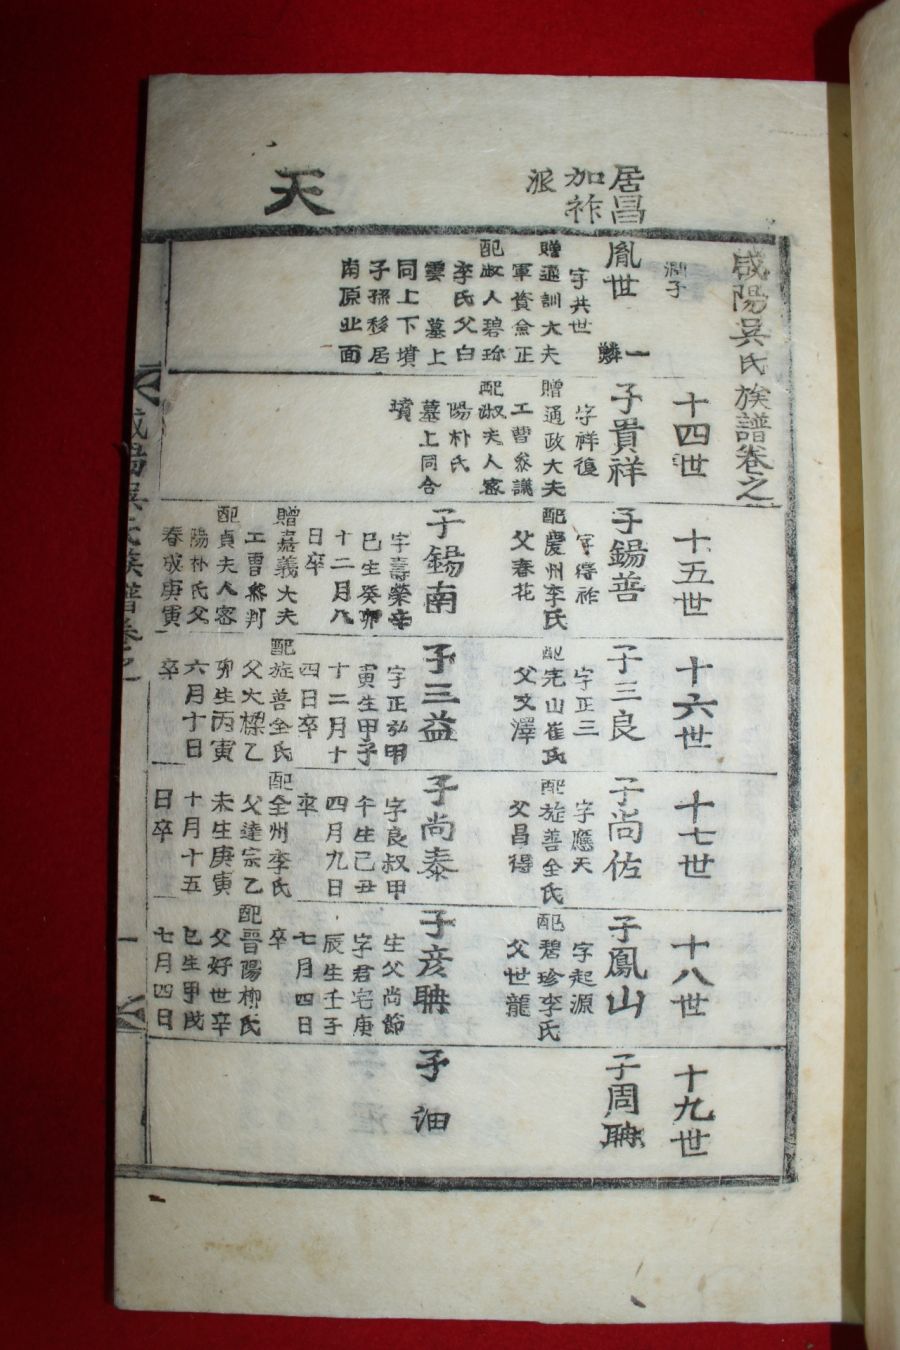 天
居昌
加祚
派
咸陽吳氏族譜卷之
潤子
胤世
一麟
字共世
贈通訓大夫
軍資僉正
配淑人碧珍
李氏父白
雲 墓上
同上下墳
子孫移居
南原北面
十四世
子貴祥
字祥復
贈通政大夫
工曹參議
配淑夫人密
陽朴氏
墓上同合
墳
十五世
子錫善
字得祚
配慶州李氏
父春花
子錫南
字壽榮辛
巳生癸卯
十二月八
日卒
贈嘉義大夫
工曹參判
配貞夫人密
陽朴氏父
春成庚寅
十六世
子三良
字正三
配完山崔氏
父文澤
子三益
字正弘甲
寅生甲子
十二月十
四日卒
配旌善全氏
父大樑乙
卯生丙寅
六月十日
卒
十七世
子尚佐
字應天
配旌善全氏
父昌得
子尚泰
字良叔甲
午生己丑
四月九日
卒
配全州李氏
父達宗乙
未生庚寅
十月十五
日卒
十八世
子鳳山
字起源
配碧珍李氏
父世龍
子彦聃
生父尚節
字君宅庚
辰生壬子
七月四日
卒
配晉陽柳氏
父好世辛
巳生甲戌
七月四日
十九世
子周聃
子𬤀
咸陽吳氏族譜卷之
一